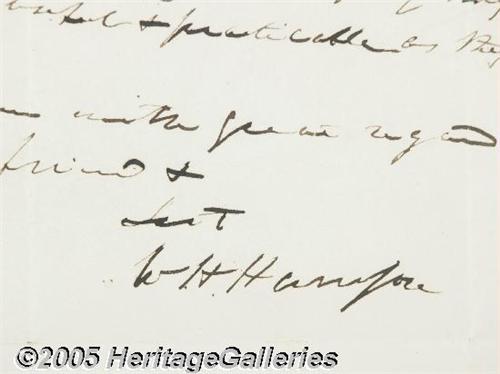 & practicable as they
with great regard
friend &
Servt
W H Harrison
©2005 HeritageGalleries